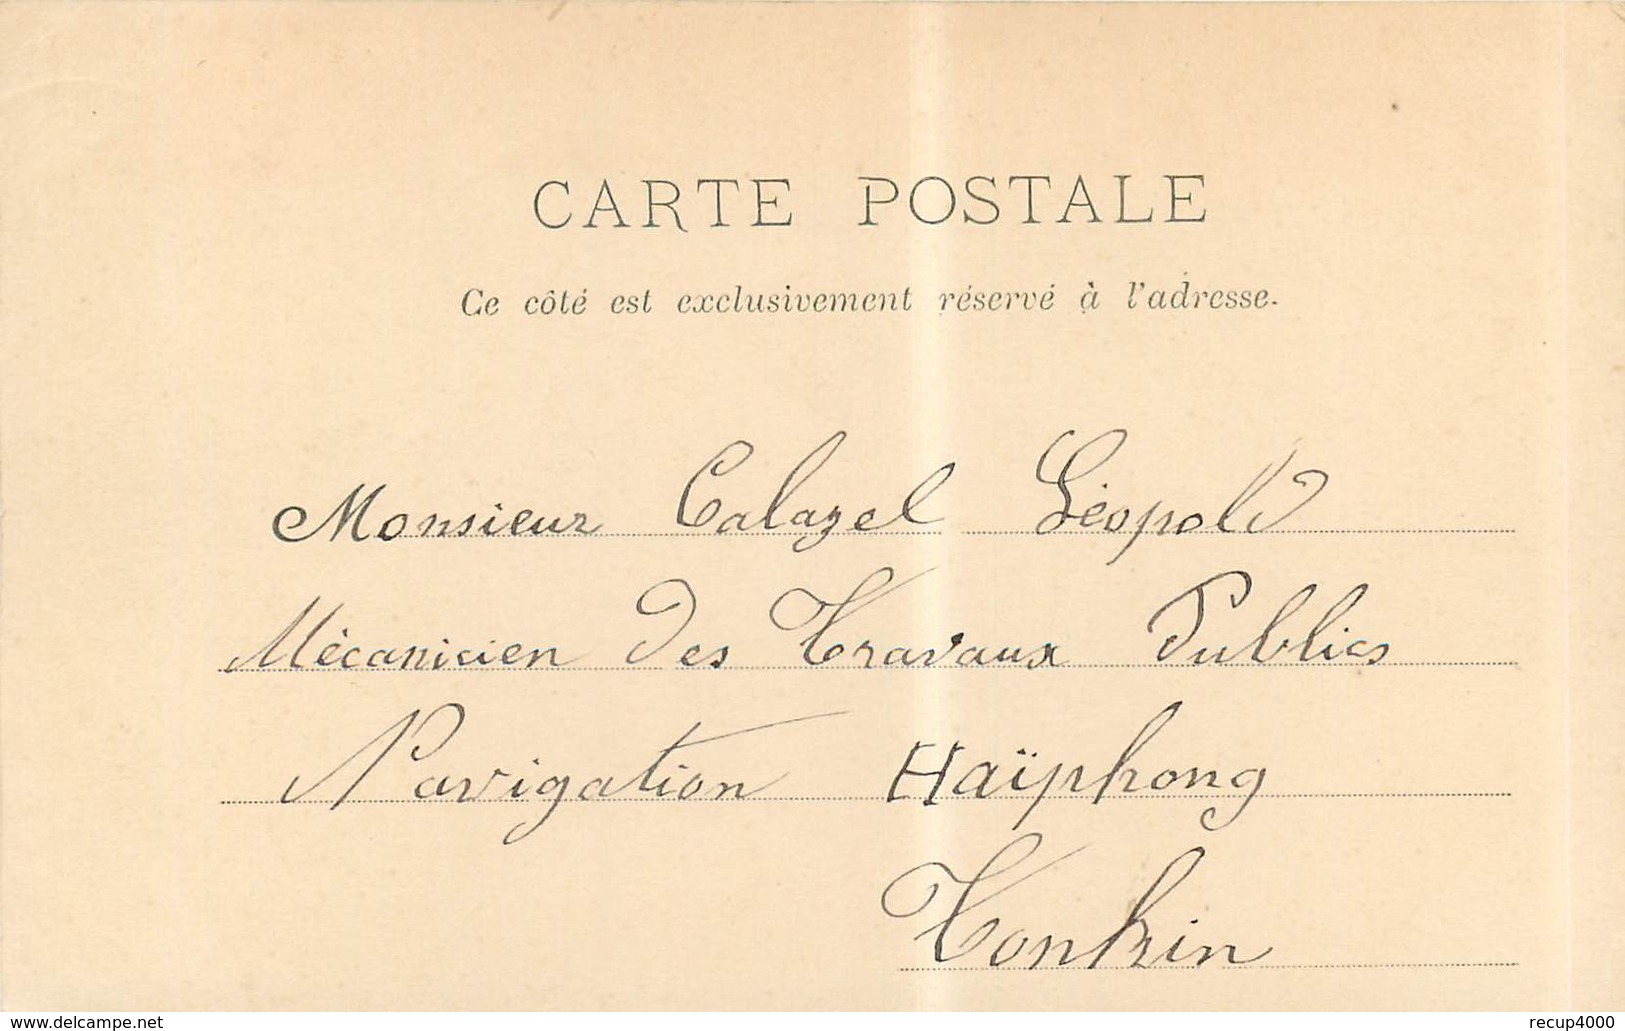 CARTE POSTALE
Ce côté est exclusivement réservé à l'adresse.
Monsieur Calazel Léopold
Mécanicien des Travaux Publics
Navigation Haïphong
Tonkin
www.delcampe.net
recup4000